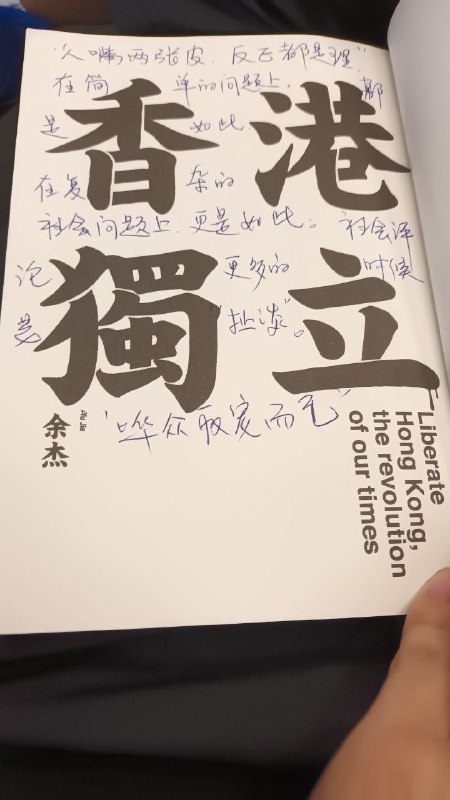 "人嘴两张皮，反正都是理"
在简单的问题上，都
是如此
香港
在复杂的
社会问题上，更是如此。社会评
论更多的时候
獨立
是"扯淡"。
"哗众取宠而已"
余杰
Liberate
Hong Kong,
the revolution
of our times